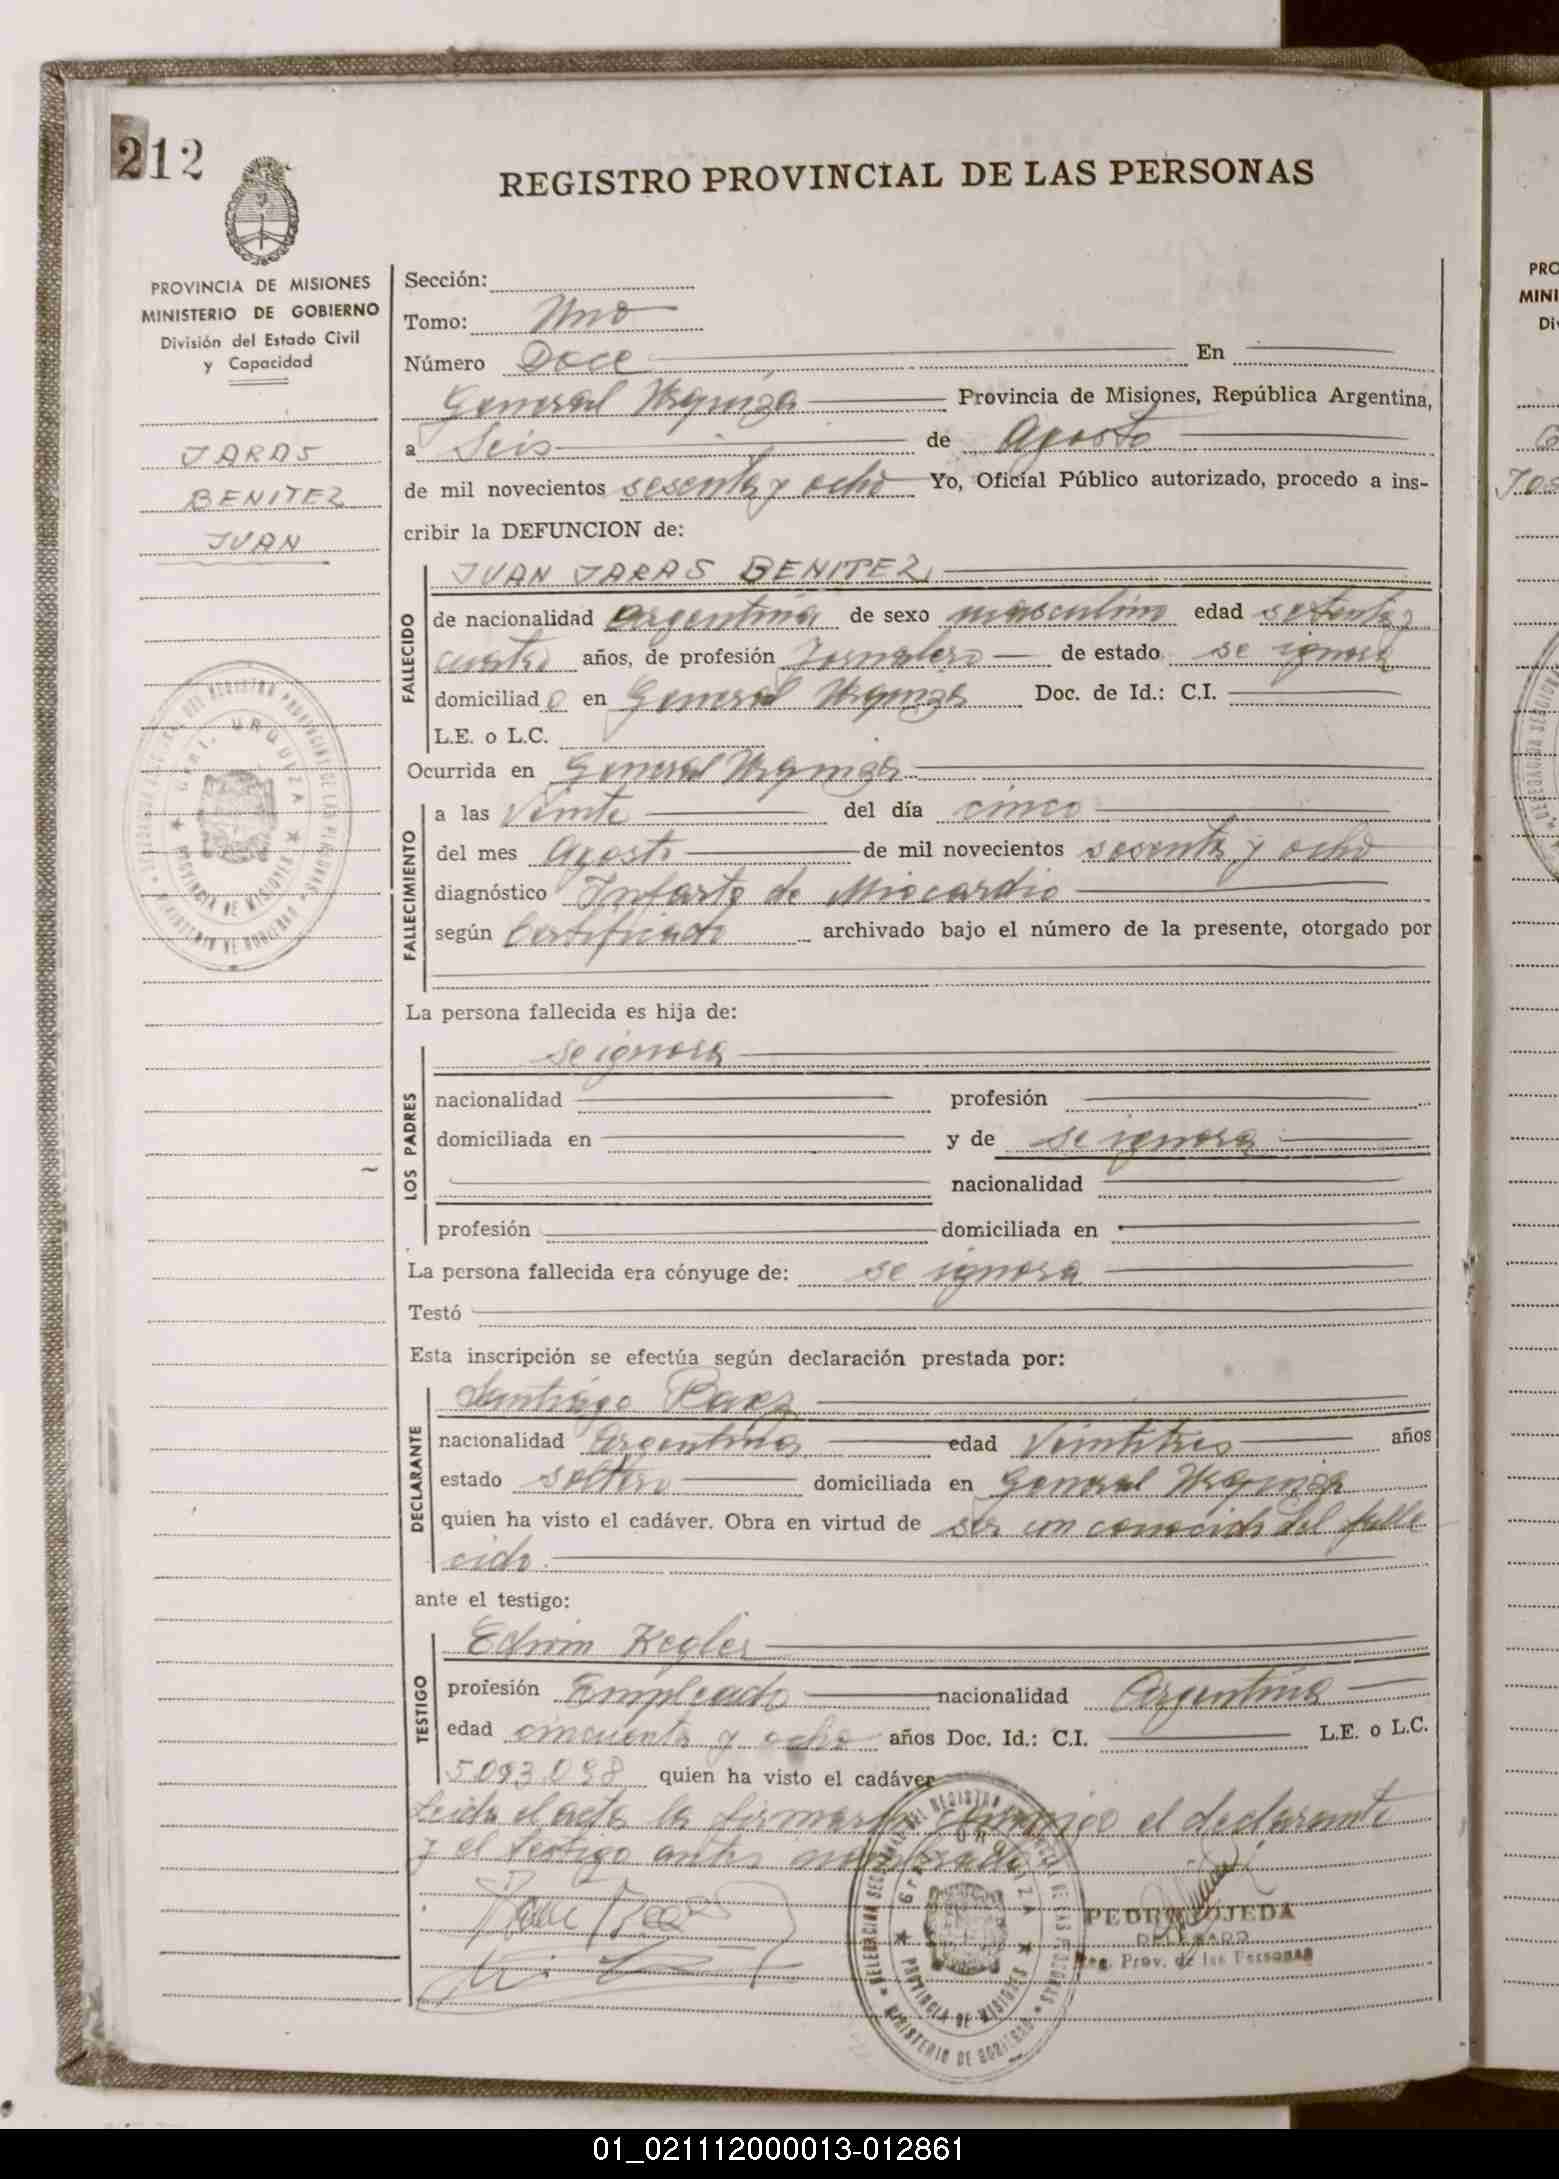 212
REGISTRO PROVINCIAL DE LAS PERSONAS
PROVINCIA DE MISIONES
MINISTERIO DE GOBIERNO
División del Estado Civil
y Capacidad
JARAS
BENITEZ
JUAN
Sección:
Tomo: Uno
Número Doce En
General Urquiza Provincia de Misiones, República Argentina,
a Seis de Agosto
de mil novecientos sesenta y ocho Yo, Oficial Público autorizado, procedo a ins-
cribir la DEFUNCION de:
JUAN JARAS BENITEZ
FALLECIDO
de nacionalidad argentina de sexo masculino edad setenta y
cuatro años, de profesión Jornalero de estado se ignora
domiciliado en General Urquiza Doc. de Id.: C.I.
L.E. o L.C.
Ocurrida en General Urquiza
FALLECIMIENTO
a las Veinte del día cinco
del mes Agosto de mil novecientos sesenta y ocho
diagnóstico Infarto de Miocardio
según Certificado archivado bajo el número de la presente, otorgado por
La persona fallecida es hija de:
LOS PADRES
se ignora
nacionalidad profesión
domiciliada en y de se ignora
nacionalidad
profesión domiciliada en
La persona fallecida era cónyuge de: se ignora
Testó
Esta inscripción se efectúa según declaración prestada por:
DECLARANTE
Santiago Baez
nacionalidad Argentina edad Veintitres años
estado soltero domiciliada en General Urquiza
quien ha visto el cadáver. Obra en virtud de ser un conocido del falle
cido.
ante el testigo:
TESTIGO
Edwin Kegler
profesión Empleado nacionalidad Argentina
edad cincuenta y ocho años Doc. Id.: C.I. L.E. o L.C.
5.093.098 quien ha visto el cadáver
Leida el acta la firman conmigo el declarante
y el testigo antes nombrado
PEDRO OJEDA
DELEGADO
Reg. Prov. de las Personas
GRL. URQUIZA
PROVINCIA DE MISIONES
MINISTERIO DE GOBIERNO
PRO
MINI
Div
01_021112000013-012861